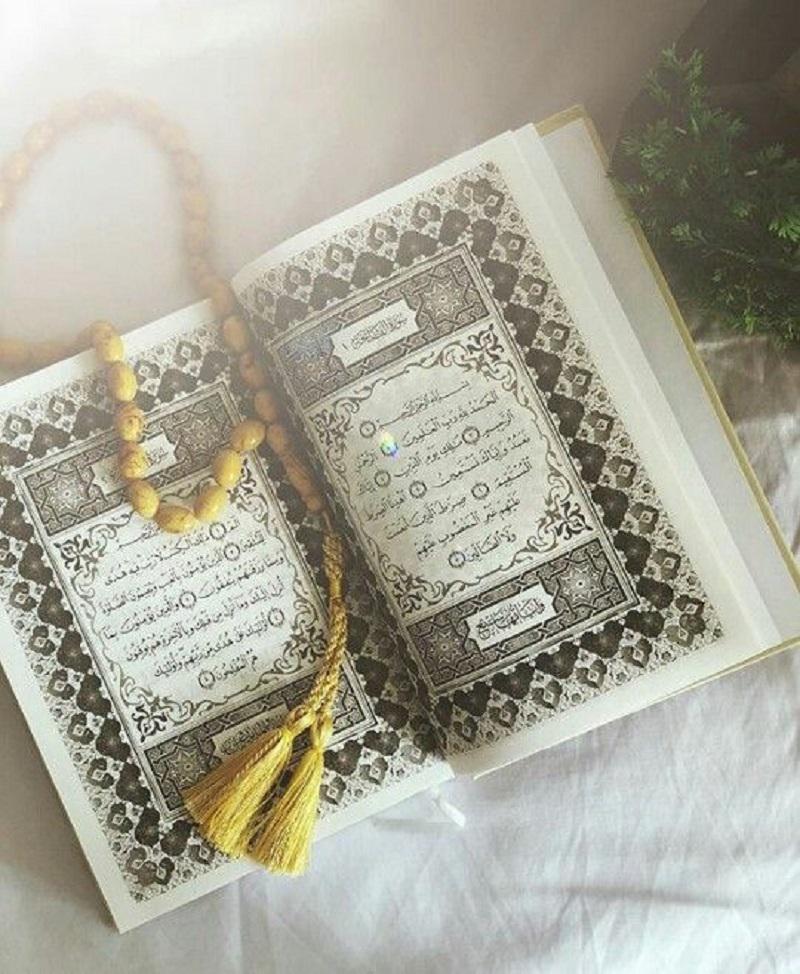 سورة الفاتحة ١
بِسْمِ اللَّهِ الرَّحْمَٰنِ الرَّحِيمِ ١
الْحَمْدُ لِلَّهِ رَبِّ الْعَالَمِينَ ٢ الرَّحْمَٰنِ
الرَّحِيمِ ٣ مَالِكِ يَوْمِ الدِّينِ ٤ إِيَّاكَ
نَعْبُدُ وَإِيَّاكَ نَسْتَعِينُ ٥ اهْدِنَا الصِّرَاطَ
الْمُسْتَقِيمَ ٦ صِرَاطَ الَّذِينَ أَنْعَمْتَ
عَلَيْهِمْ غَيْرِ الْمَغْضُوبِ عَلَيْهِمْ
وَلَا الضَّالِّينَ ٧
سورة
الم ١ ذَٰلِكَ الْكِتَابُ لَا رَيْبَ فِيهِ هُدًى
لِلْمُتَّقِينَ ٢ الَّذِينَ يُؤْمِنُونَ بِالْغَيْبِ وَيُقِيمُونَ الصَّلَاةَ
وَمِمَّا رَزَقْنَاهُمْ يُنْفِقُونَ ٣ وَالَّذِينَ يُؤْمِنُونَ بِمَا
أُنْزِلَ إِلَيْكَ وَمَا أُنْزِلَ مِنْ قَبْلِكَ وَبِالْآخِرَةِ هُمْ يُوقِنُونَ ٤
أُولَٰئِكَ عَلَىٰ هُدًى مِنْ رَبِّهِمْ وَأُولَٰئِكَ
هُمُ الْمُفْلِحُونَ ٥